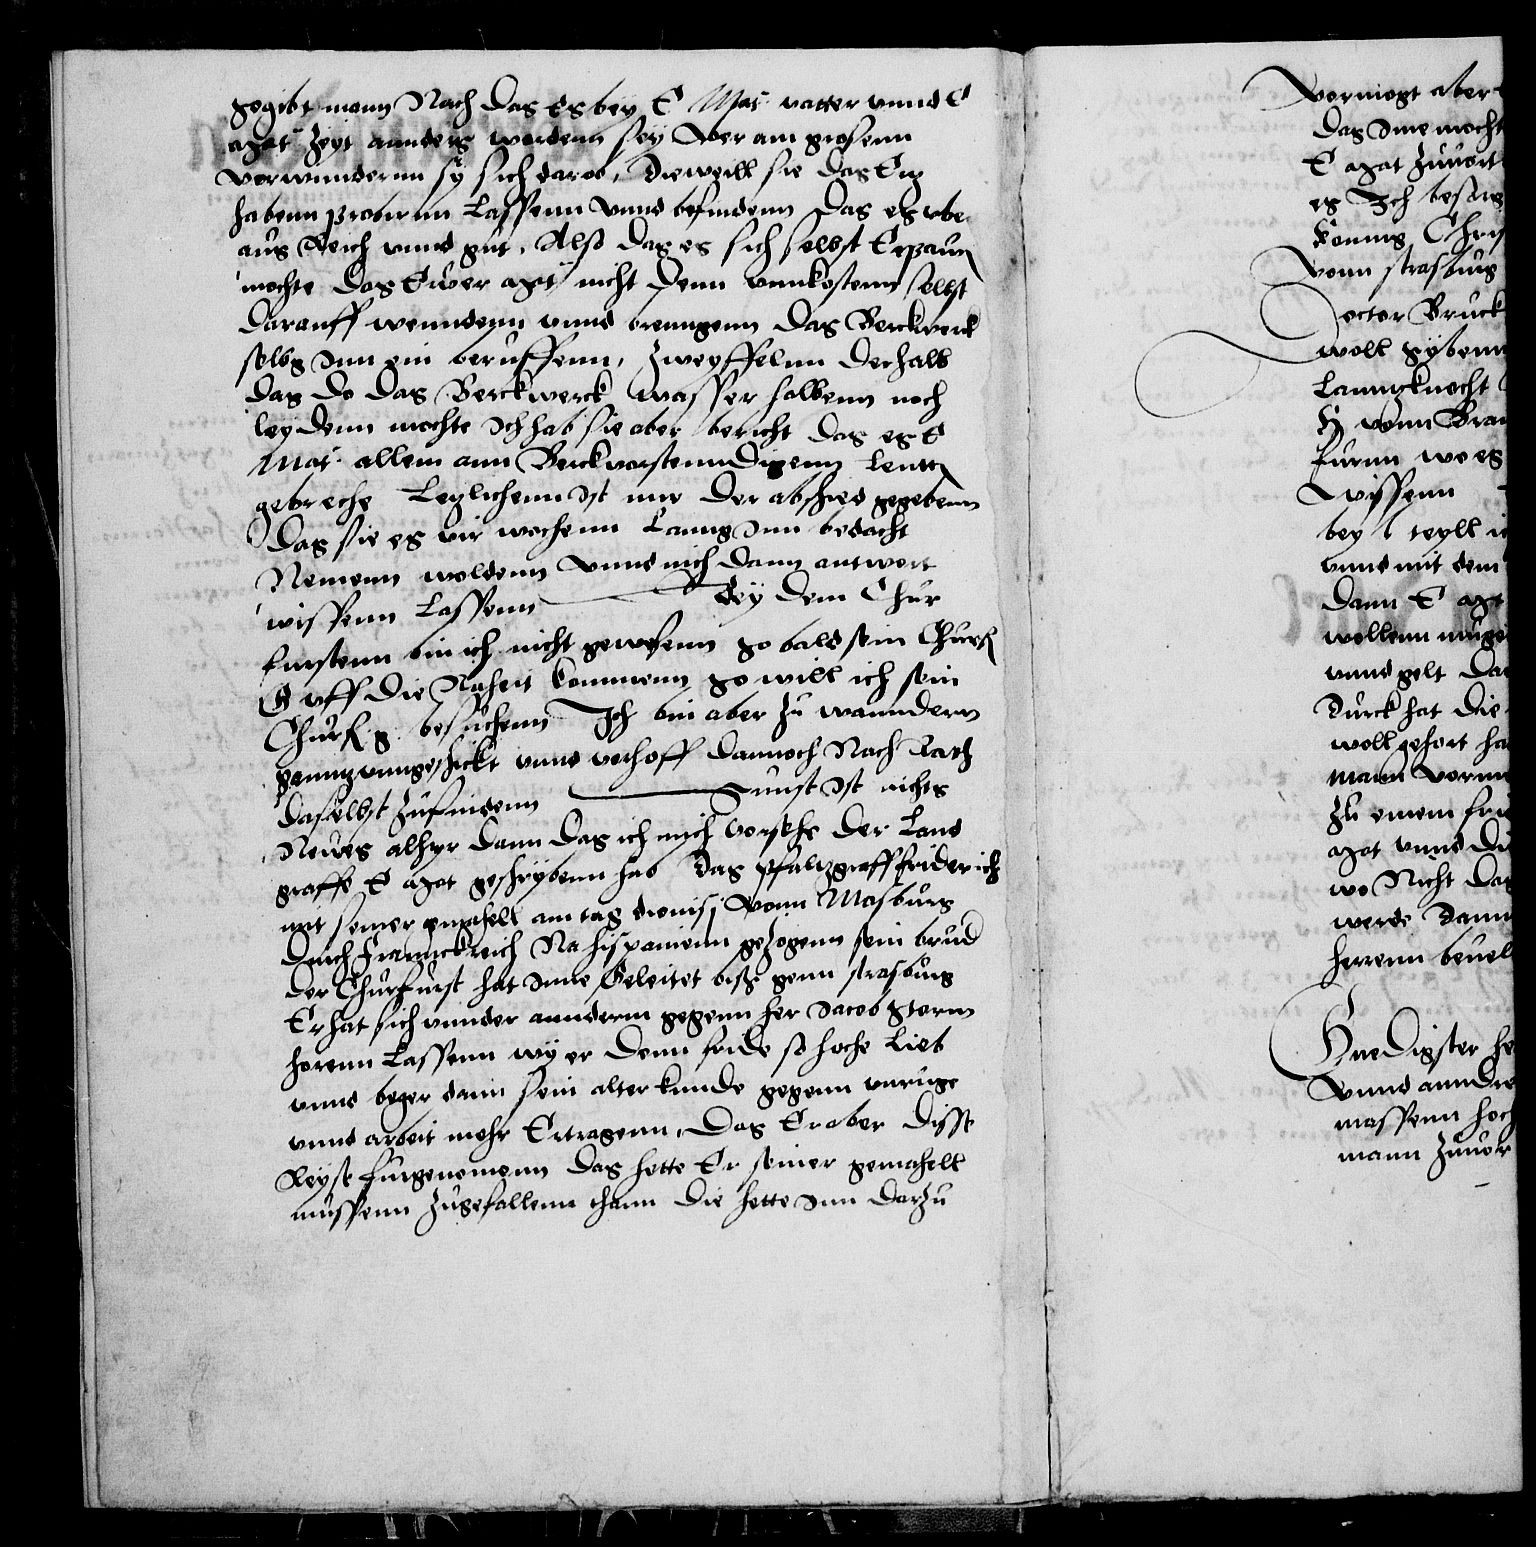 gegibt mann Nach das es bey E Mat: vatter vnnd E
Mat: Zeyt annders wordenn sey Aber am grosenn
verwundernn sy sich darob, Dieweill sie das Ertz
habenn probirnn Lassenn vnnd befindenn das es vber
aus Reich vnnd gut, Also das es sich selbst Erpaun
mochte das Ewer Mat nicht denn vnnkostenn selbst
darauff wenndenn vnnd brenngenn das Berckwerck
selbs Inn ein beruffenn, Zweyffelnn derhalb
das do das Berckwerck wasser halbenn noch
leydenn mochte Ich hab sie aber bericht das es E
Mat: allein ann Berckvorstenndigenn leuttn
gebreche Letzlichenn Ist mir der abschied gegebenn
das sie es vir wochenn Lanng Inn bedacht
Nemenn woldenn Vnnd mich dann antwort
wissenn Lassenn Bey dem Chur
furstenn bin ich nicht gewesenn so bald sein Churf
G vff die Naheit kommenn so will ich sein
Churf g besuchenn Ich bin aber zu wanndern
ganntz vnngeschickt vnnd verhoff dannoch Nach Rath
daselbst zufindenn Sunst Ist nichts
Neues alhyr dann das ich mich vorsehe der Land
graffe E Mat geschrybenn hab das Pfaltzgraff friderich
mit seiner gemahell am tag dionisj vonn Masburg
durch Frannckreich Na hispanienn gezogenn sein brud
der Churfurst hat Inne Geleitet bisz genn strasburg
Er hat sich vnnder annderm gegenn her Jacob Storm
horenn Lassenn wy er denn fride so hoche Liebt
vnnd beger dann sein alter kunde gegenn vnruge
vnnd arbeit mehr Ertragenn, Das Er aber disse
Reyse furgenomenn das hette Er seiner gemahell
mussenn zugefallenn thann die hette Inn darzu
Vormogt aber
das Ime mocht
E Mat zuuor
es Ich besorg
konnig Chris
Vonn strasburg
Doctor Bruck
woll gybenn
Lanntzknecht
H vonn Bran
furnn wo es
Wyssenn
bey teyll
vnnd mit dem
dann E Mat
wollenn muge
vnnd gelt das
Durck hat die
woll gehort ha
mann vornn
Zu einem frid
Mat vnnd Du
wo Nicht das
werde dann
herrenn beuel
Gnedigster he
Vnnd anndre
massenn hoch
mann zuuor